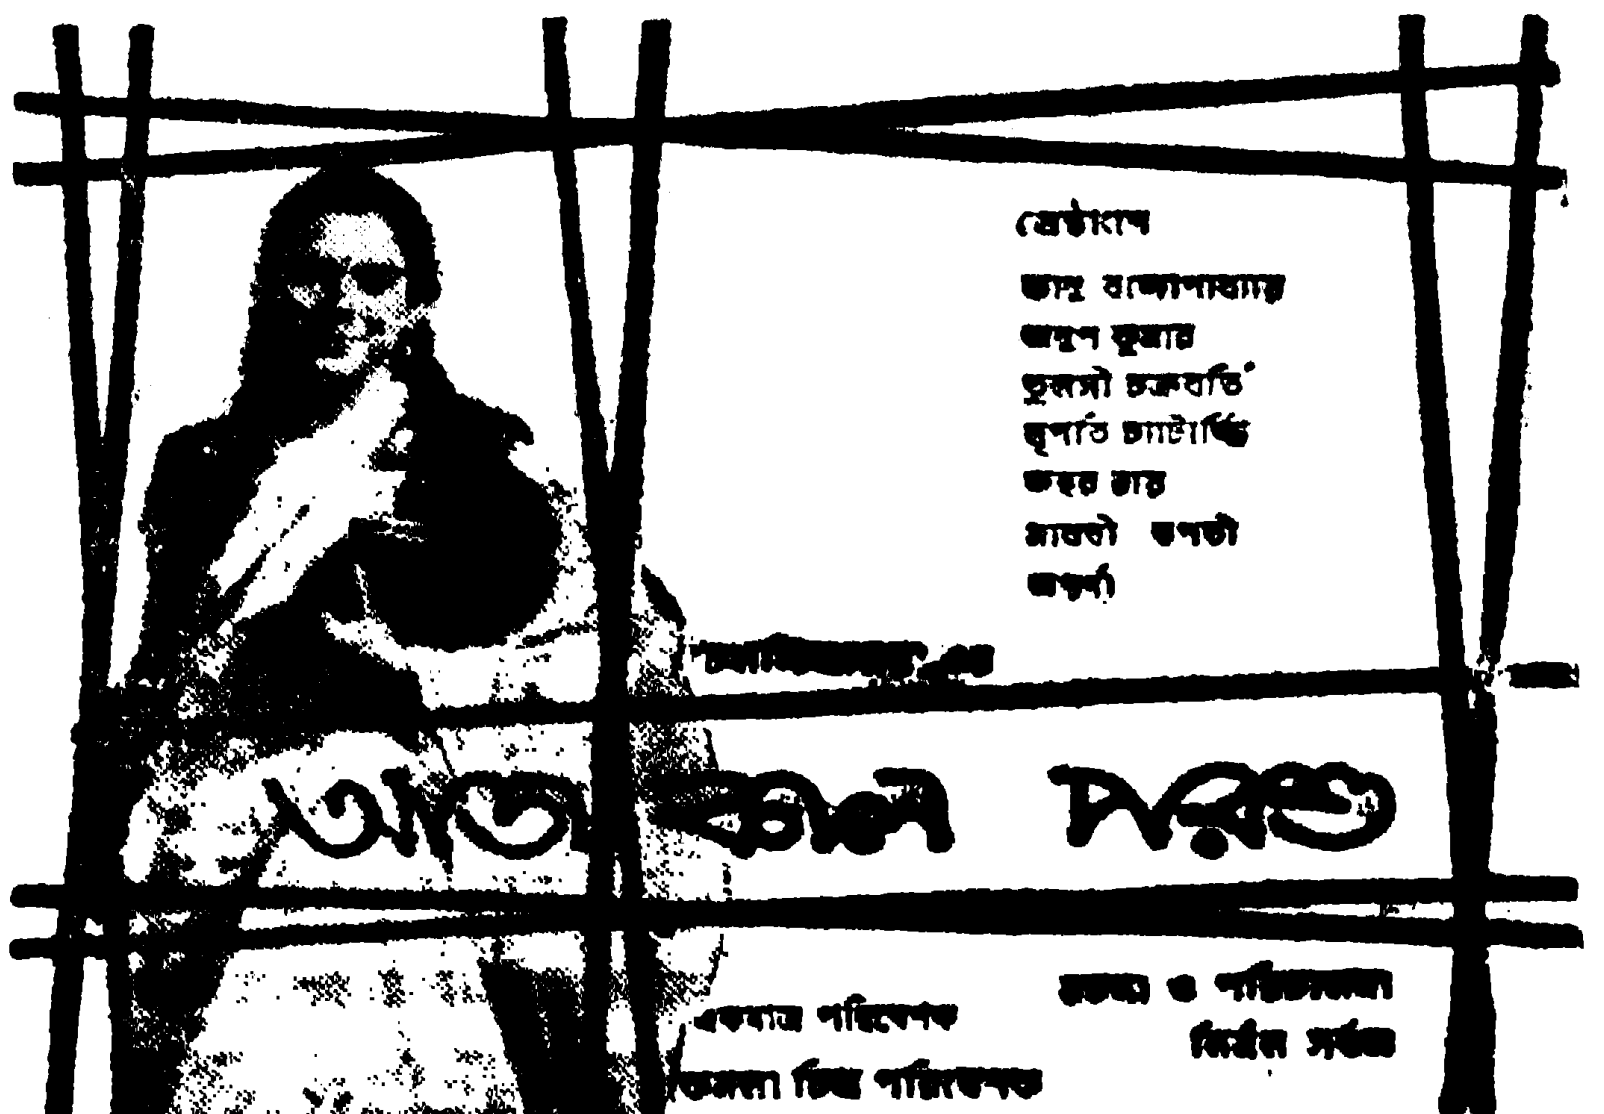 শ্রেষ্ঠাংশে
ভানু বন্দ্যোপাধ্যায়
অনুপ কুমার
তুলসী চক্রবর্তি
নৃপতি চ্যাটার্জ্জি
জহর রায়
মাধবী তপতী
অপর্ণা
আজ কাল পরশু
রচনা ও পরিচালনা
নির্মল সর্বজ্ঞ
একমাত্র পরিবেশক
চিত্র পরিবেশক